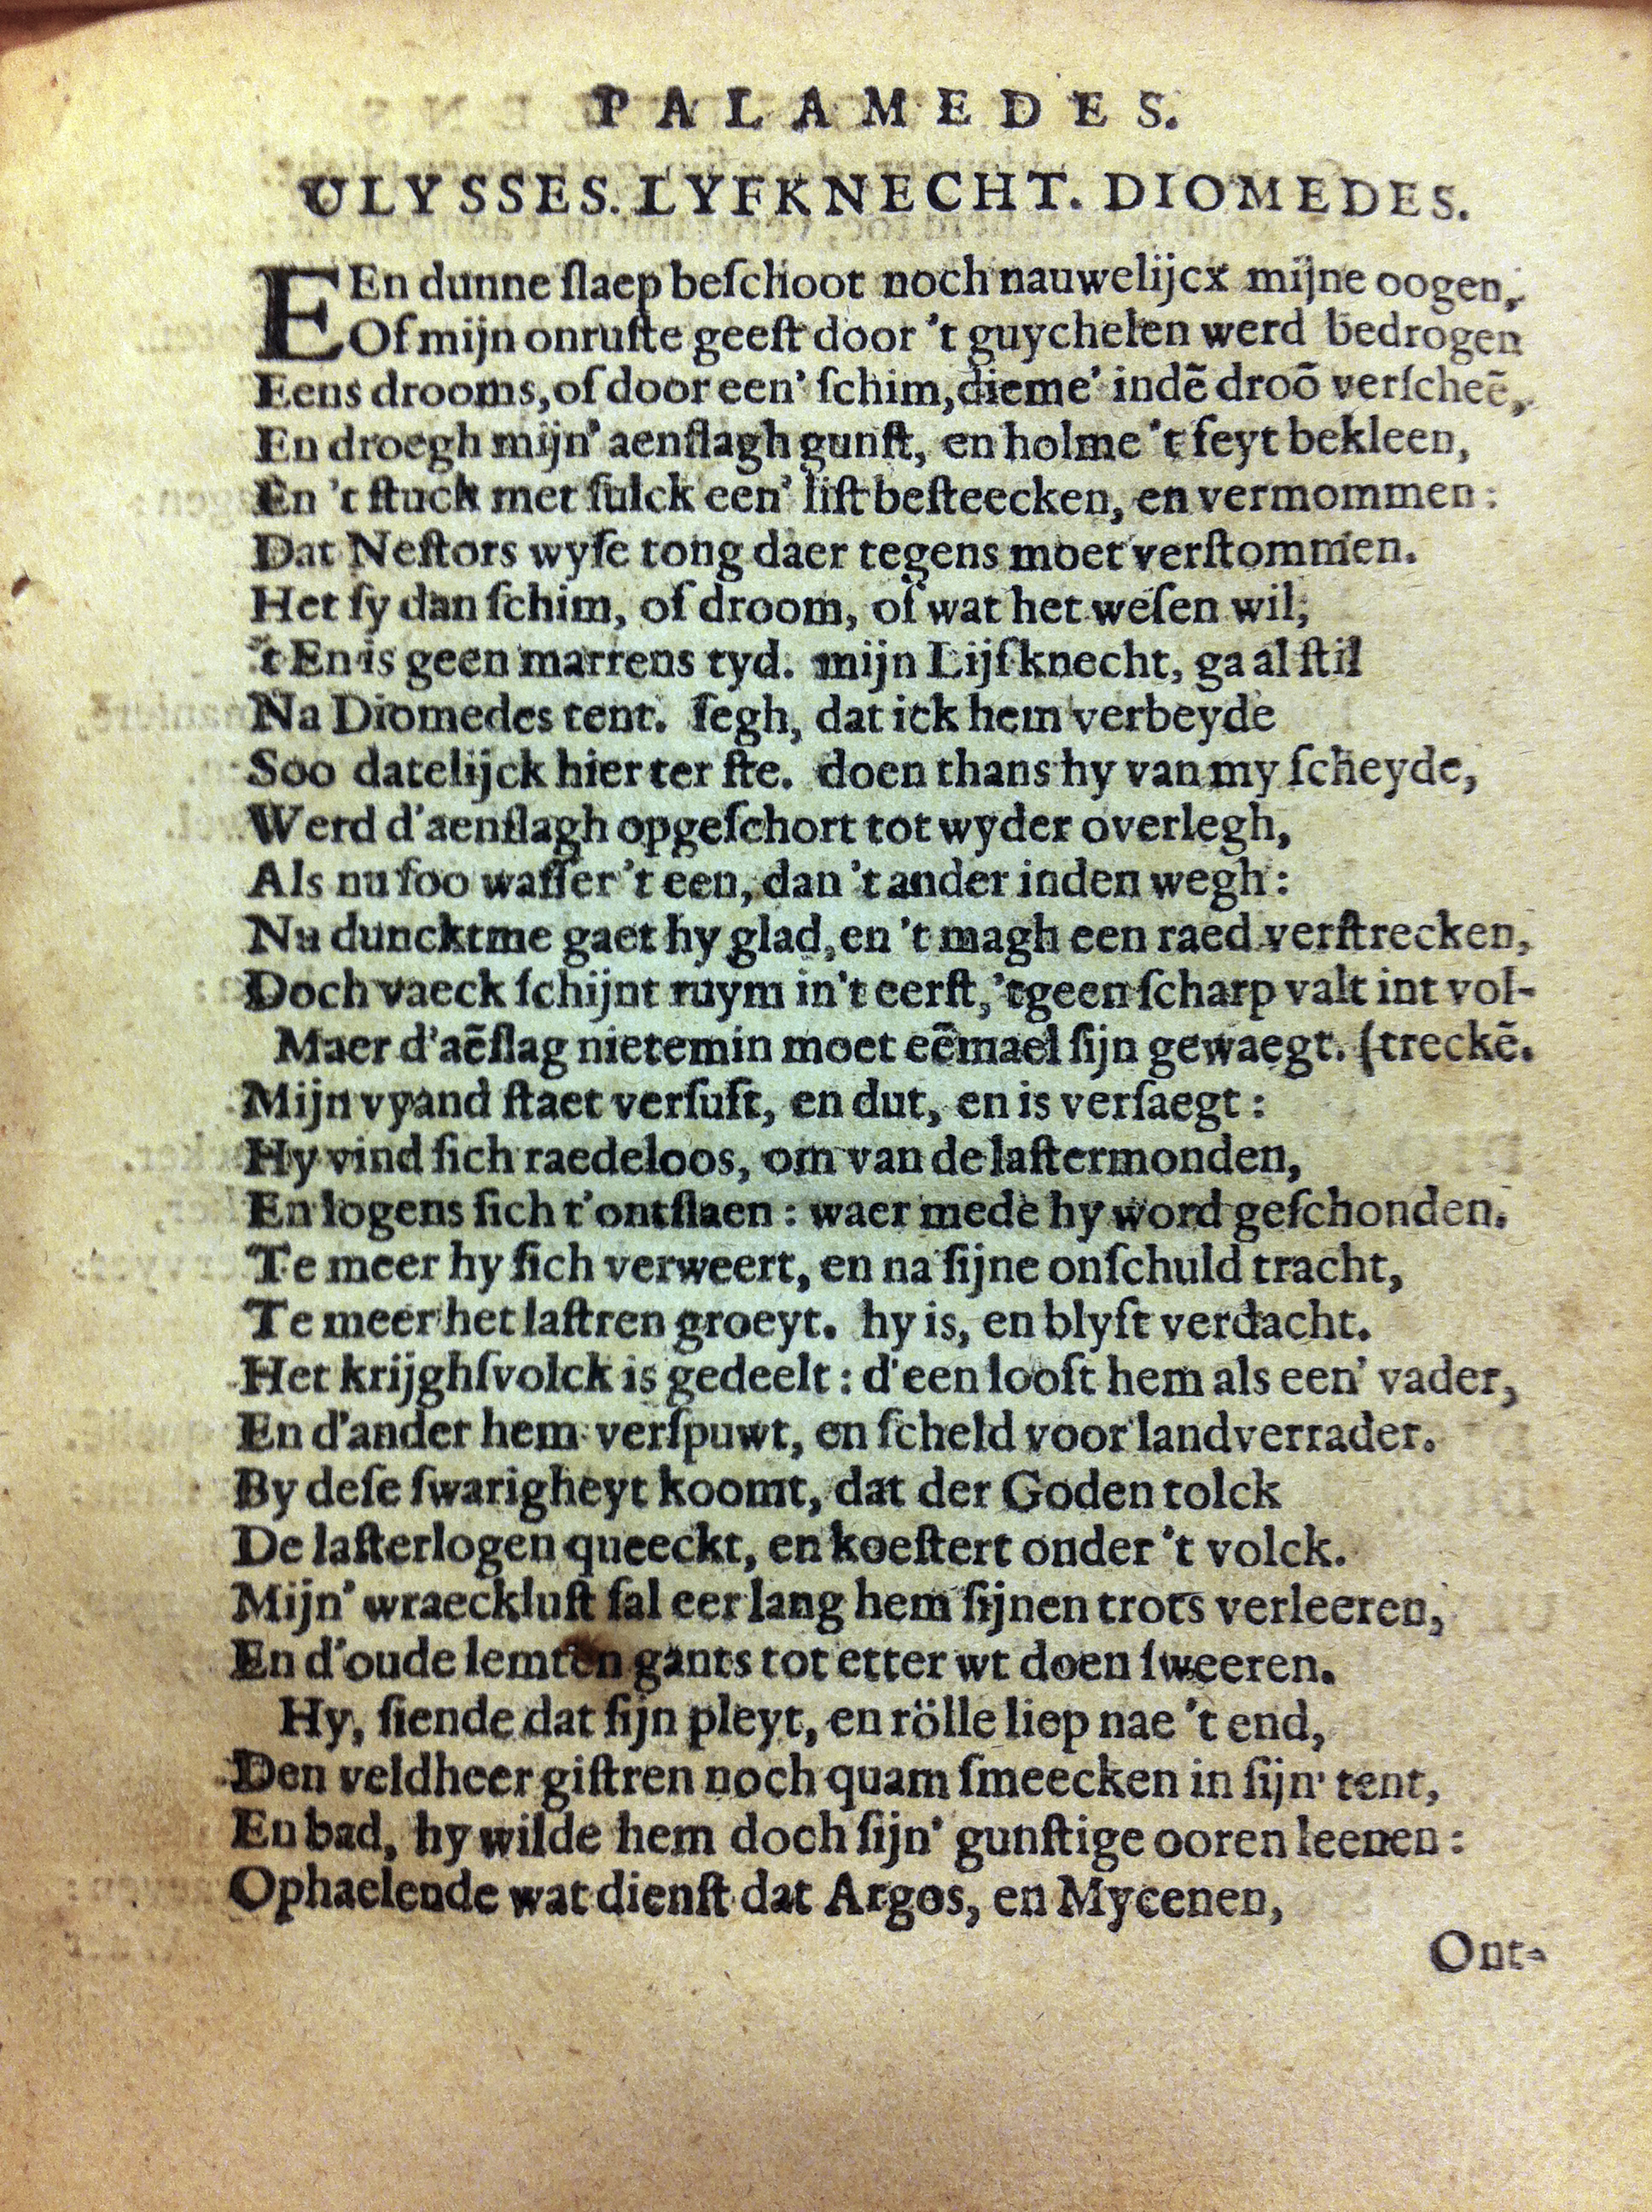 PALAMEDES.
ULYSSES. LYFKNECHT. DIOMEDES.
EEn dunne ſlaep beſchoot noch nauwelijcx mijne oogen,
Of mijn onruſte geeſt door 't guychelen werd bedrogen
Eens drooms, of door een' ſchim, dieme' indẽ droõ verſcheẽ,
En droegh mijn' aenſlagh gunſt, en holme 't feyt bekleen,
En 't ſtuck met ſulck een' liſt beſteecken, en vermommen:
Dat Neſtors wyſe tong daer tegens moet verſtommen.
Het ſy dan ſchim, of droom, of wat het weſen wil;
't En is geen marrens tyd. mijn Lijfknecht, ga al ſtil
Na Diomedes tent. ſegh, dat ick hem verbeyde
Soo datelijck hier ter ſte. doen thans hy van my ſcheyde,
Werd d'aenſlagh opgeſchort tot wyder overlegh,
Als nu ſoo waſſer 't een, dan 't ander inden wegh:
Nu duncktme gaet hy glad, en 't magh een raed verſtrecken,
Doch vaeck ſchijnt ruym in't eerſt, 'tgeen ſcharp valt int vol-
Maer d'aẽſlag nietemin moet eẽmael ſijn gewaegt. (treckẽ.
Mijn vyand ſtaet verſuft, en dut, en is verſaegt:
Hy vind ſich raedeloos, om van de laſtermonden,
En logens ſich t'ontſlaen: waer mede hy word geſchonden.
Te meer hy ſich verweert, en na ſijne onſchuld tracht,
Te meer het laſtren groeyt. hy is, en blyft verdacht.
Het krijghſvolck is gedeelt: d'een looft hem als een' vader,
En d'ander hem verſpuwt, en ſcheld voor landverrader.
By deſe ſwarigheyt koomt, dat der Goden tolck
De laſterlogen queeckt, en koeſtert onder 't volck.
Mijn' wraeckluſt ſal eer lang hem ſijnen trots verleeren,
En d'oude lemten gants tot etter wt doen ſweeren.
Hy, ſiende dat ſijn pleyt, en rölle liep nae 't end,
Den veldheer giſtren noch quam ſmeecken in ſijn' tent,
En bad, hy wilde hem doch ſijn' gunſtige ooren leenen:
Ophaelende wat dienſt dat Argos, en Mycenen,
Ont-